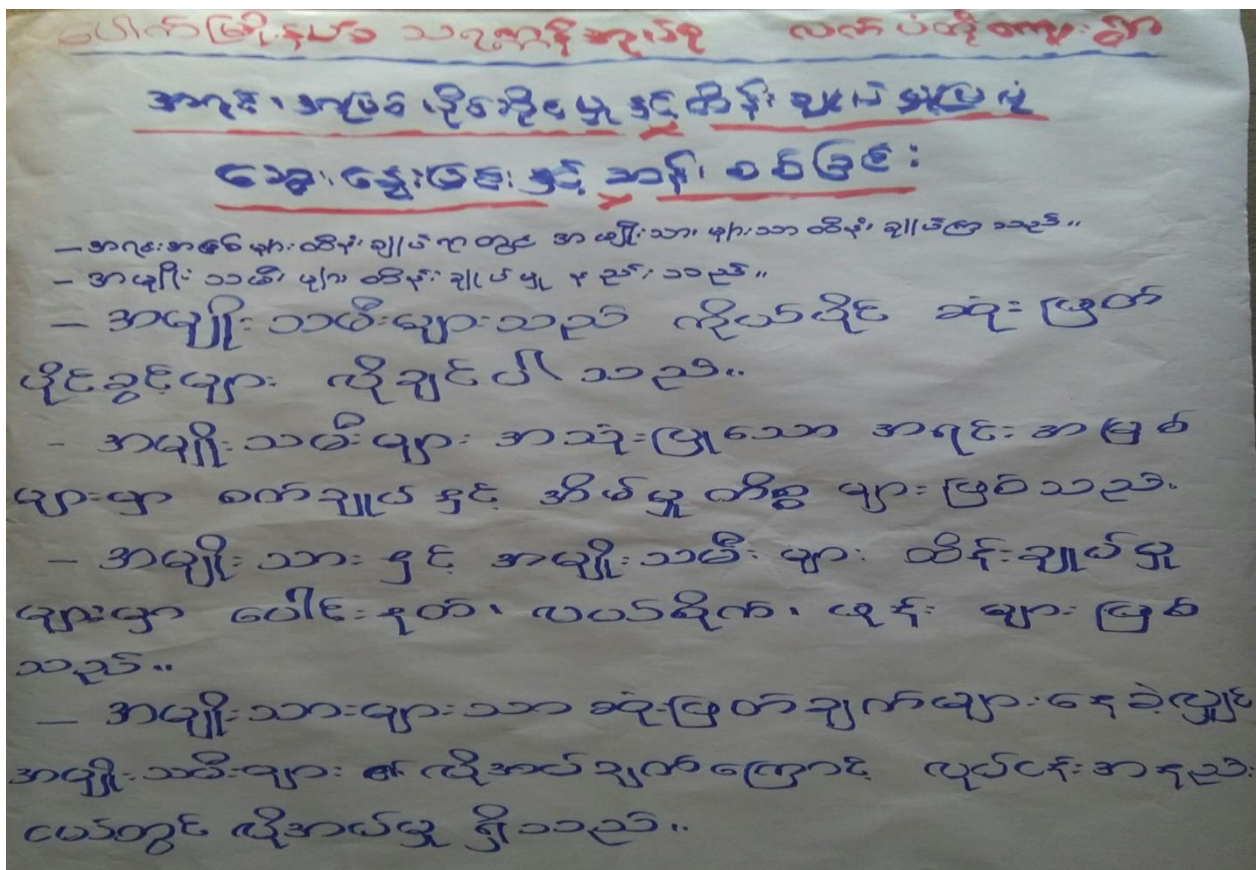 ပေါက်မြို့နယ်၊ သရက္ကန်အုပ်စု လက်ပံတိုကျေးရွာ
အရင်းအမြစ်ပိုင်ဆိုင်မှုနှင့်ထိန်းချုပ်မှုပြပုံ
ဆွေးနွေးခြင်းနှင့် ဆန်းစစ်ခြင်း
– အရင်းအမြစ်များထိန်းချုပ်ရာတွင် အမျိုးသားများသာထိန်းချုပ်ကြသည်။
– အမျိုးသမီးများထိန်းချုပ်မှုနည်းသည်။
– အမျိုးသမီးများသည် ကိုယ်ပိုင် ဆုံးဖြတ်
ပိုင်ခွင့်များ လိုချင်ပါသည်။
- အမျိုးသမီးများ အသုံးပြုသော အရင်းအမြစ်
များမှာ စက်ချုပ်နှင့် အိမ်မှုကိစ္စများဖြစ်သည်။
– အမျိုးသားနှင့် အမျိုးသမီးများ ထိန်းချုပ်မှု
များမှာ ပေါင်းနုတ်၊ လယ်စိုက်၊ ဖုန်းများဖြစ်
သည်။
– အမျိုးသားများသာဆုံးဖြတ်ချက်များနေခဲ့လျှင်
အမျိုးသမီးများ၏လိုအပ်ချက်ကြောင့် လုပ်ငန်းအနည်း
ငယ်တွင် လိုအပ်မှုရှိသည်။